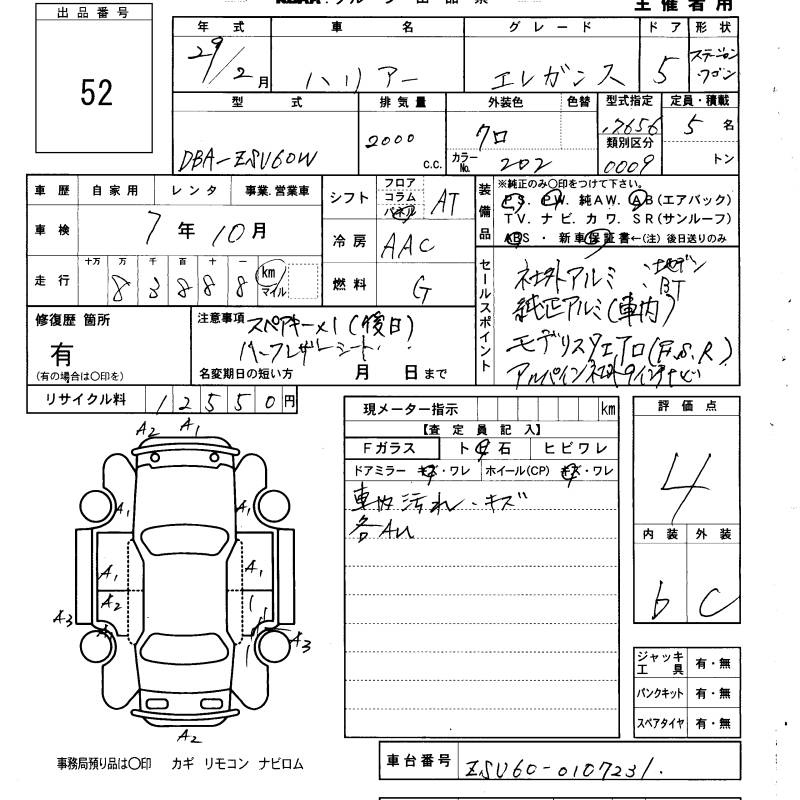 出品番号
52
主催者用
年式 車名 グレード ドア 形状
29/2月 ハリアー エレガンス 5 ステーションワゴン
型式 排気量 外装色 色替 型式指定 定員・積載
DBA-ZSU60W 2000 c.c. クロ 17656 5名
カラーNo. 202 類別区分 0009 トン
車歴 自家用 レンタ 事業.営業車
車検 7年10月
走行 十万 万 千 百 十 一
83888 km マイル
シフト フロア コラム パネル AT
冷房 AAC
燃料 G
装備品
※純正のみ〇印をつけて下さい。
P.S. P.W. 純A.W. AB(エアバック)
T.V. ナビ. カワ. S.R(サンルーフ)
ABS ・ 新車保証書←(注) 後日送りのみ
セールスポイント
社外アルミ、ナビ
BT
純正アルミ(車内)
モデリスタエアロ(F.S.R)
アルパイン
修復歴 箇所
有
(有の場合は〇印を)
注意事項
スペアキー×1(後日)
ハーフレザーシート
名変期日の短い方 月 日まで
リサイクル料 12550円
現メーター指示 km
【査定員記入】
Fガラス ト石 ヒビワレ
ドアミラー キズ・ワレ ホイール(CP) キズ・ワレ
車内汚れ・キズ
各AU
評価点
4
内装 外装
b C
A2 A1
A1 A1
A1 A1
A2
A3 A3
A2
ジャッキ工具 有・無
パンクキット 有・無
スペアタイヤ 有・無
事務局預り品は〇印 カギ リモコン ナビロム
車台番号 ZSU60-0107231